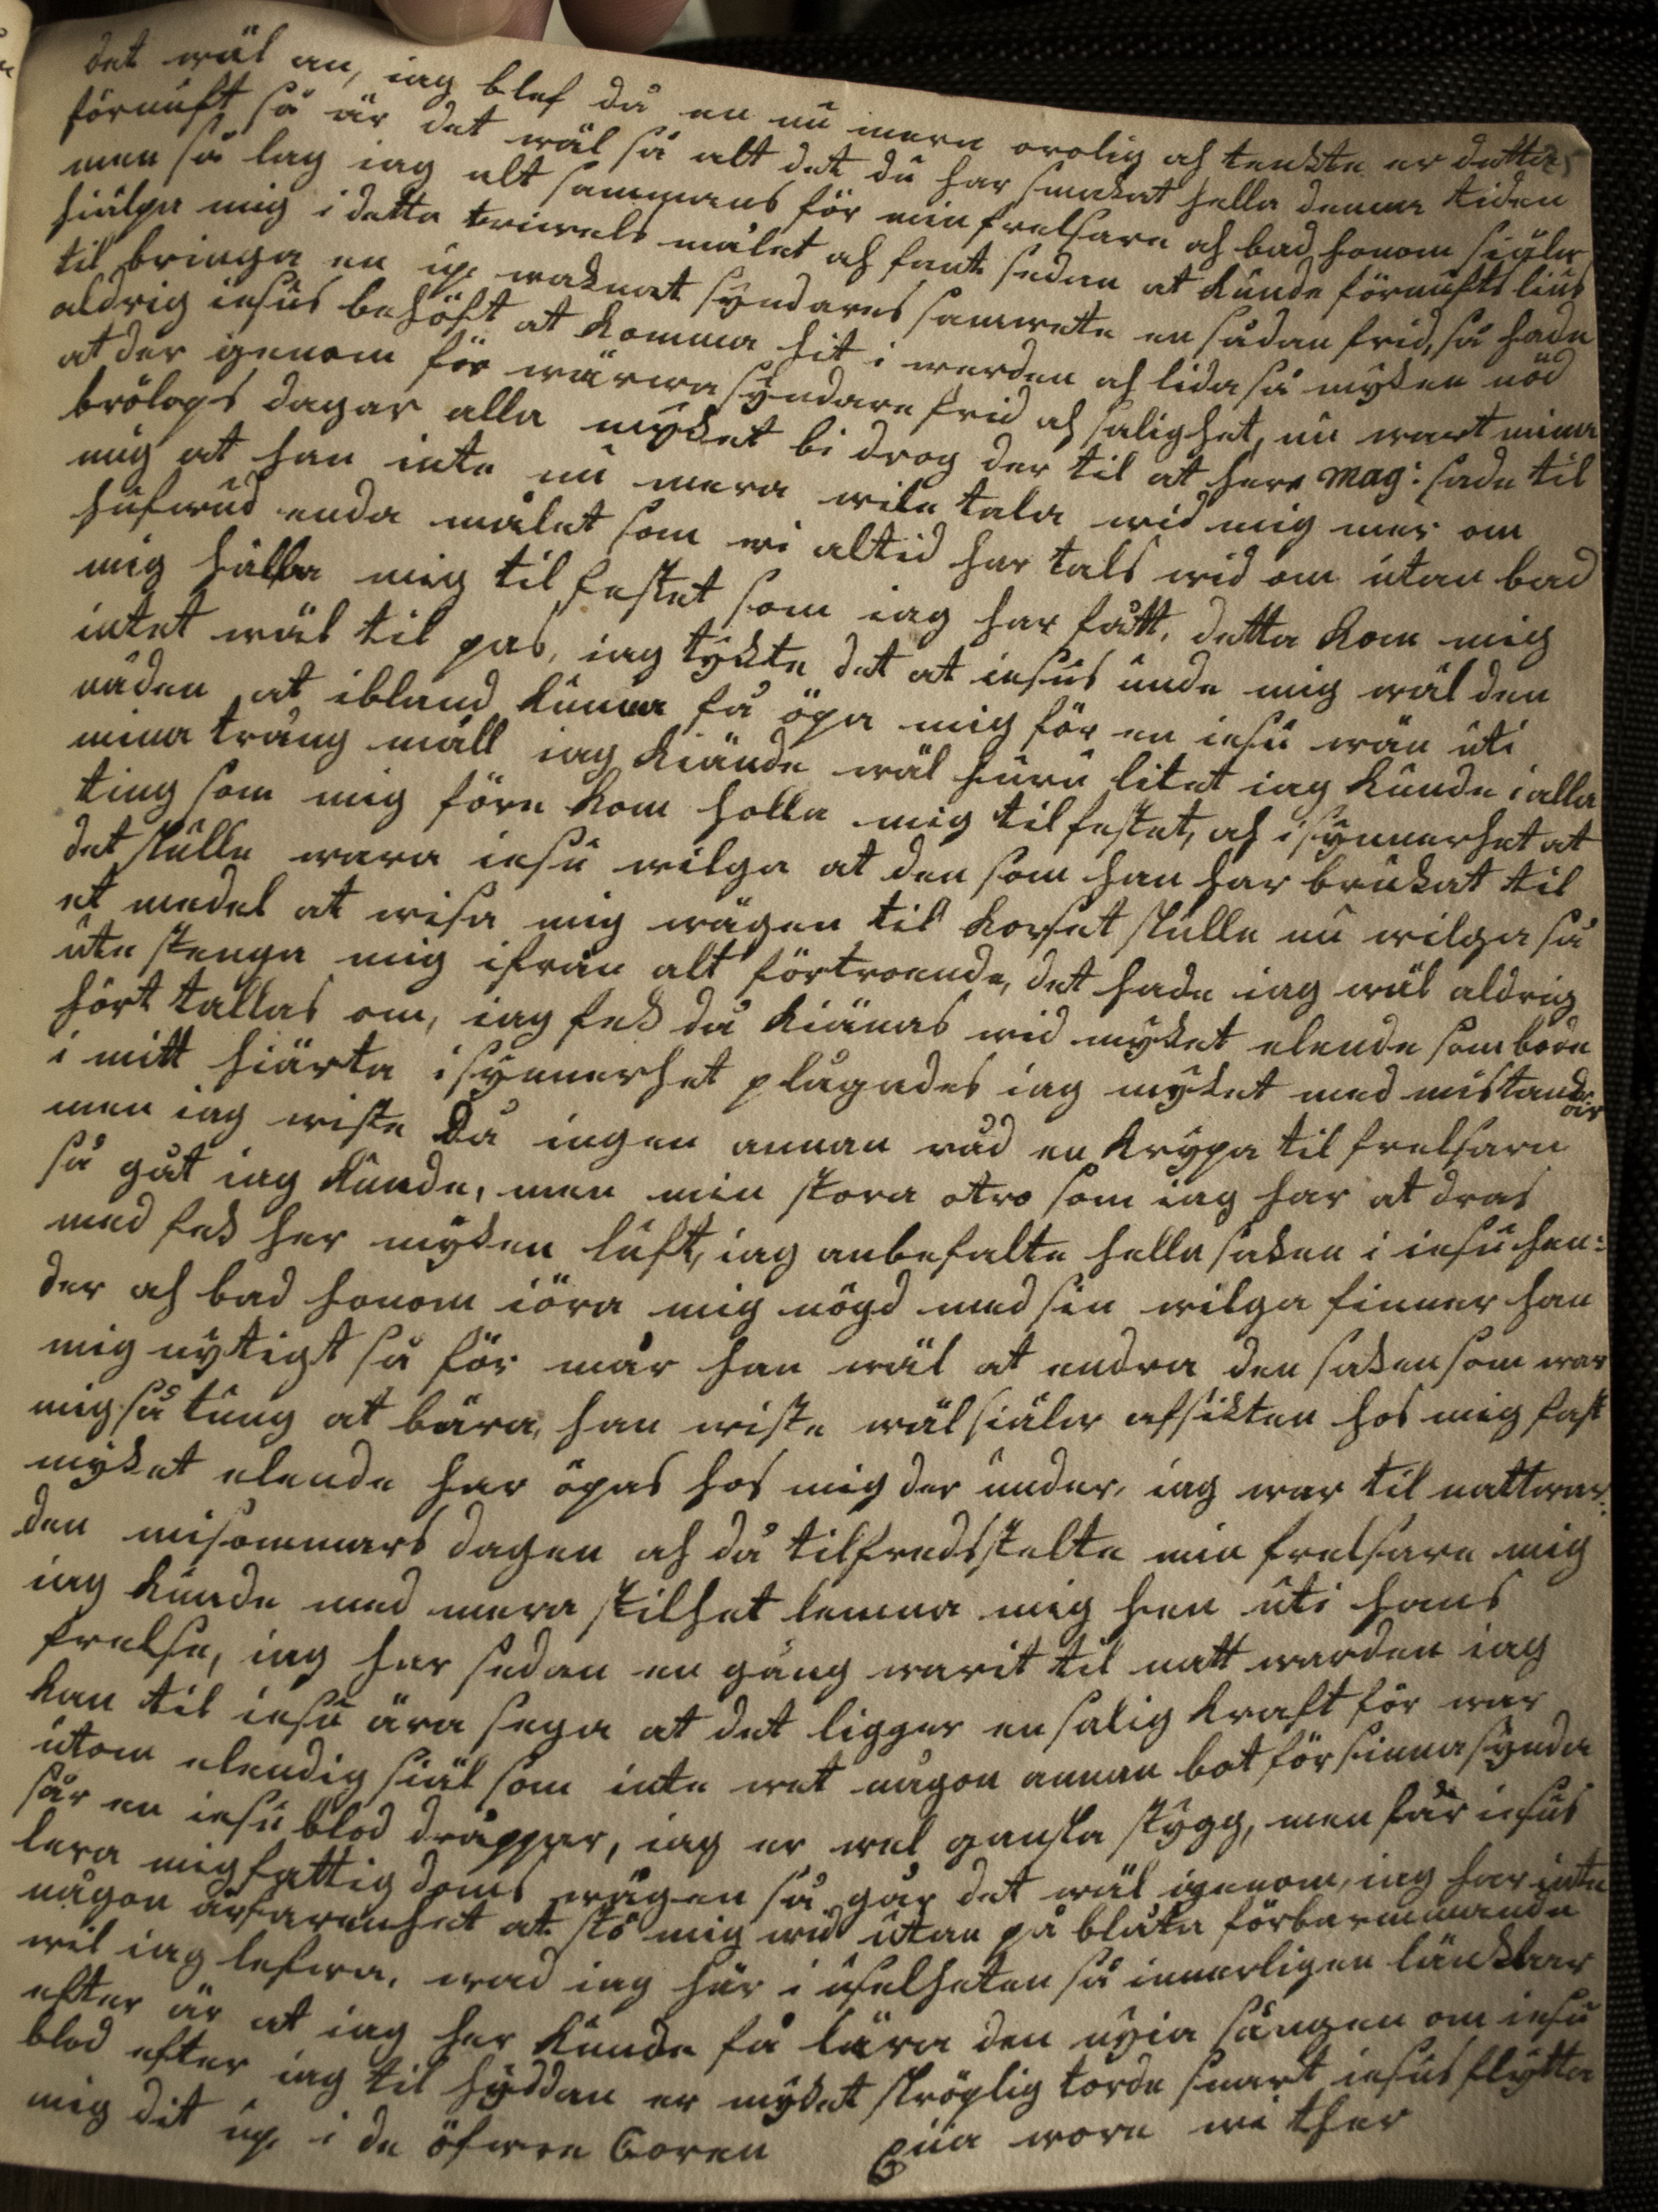 det wäl an, iag blef då en nu mera orolig ah tenckte er detta
förnuft så är det wäl så alt det du har smakat hella denna tiden
men så lag iag alt sammans för min frelsare ah bad honom siälw
hiälpa mig i detta twiwels målet ah fant sedan at kunde förnufts lius
til bringa en up waknat syndares samwete en sådan frid, så hade
aldrig iesus behöft at komma hit i werden ah lida så myken nöd
at der igenom för wärwa syndare frid ah salighet, nu wart mina
brölops dagar alla myket bi drog der til at herr Mag: sade til
mig at han inte nu mera wile tala wid mig mer om
hufwud enda målet som wi altid har tals wid om utan bad
mig hålla mig til festet som iag har fått, detta kom mig
intet wäl til pas, iag tykte det at iesus unde mig wäl den
nåden at ibland kunna få öpa mig för en iesu wän uti
mina trång måll iag kiände wäl huru litet iag kunde i alla
ting som mig före kom holla mig til festet, ah i synnerhet at
det skulle wara iesu wilga at den som han har brukat til
et medel at wisa mig wägen til korset skulle nu wilga så
ute stenga mig ifrån alt förtroende, det hade iag wäl aldrig
hört tallas om, iag fek då kiänas wid myket elende som bode
i mitt hiärta i synnerhet plågades iag myket med mistankar
men iag wiste då ingen annan råd en krypa til frelsarn
så gåt iag kunde, men min stora otro som iag har at dras
med fek her myken luft, iag anbefalte hella saken i iesu hen:
der ah bad honom iöra mig nögd med sin wilga finner han
mig nytigt så för mår han wäl at endra den saken som war
mig så tung at bära, han wiste wäl siälw afsikten hos mig fast
myket elende har öpas hos mig der under, iag war til nattwar:
den misommars dagen ah då tilfredsstelte min frelsare mig
iag kunde med mera stilhet lemna mig hen uti hans
frelse, iag har sedan en gång warit til natt warden iag
kan til iesu ära sega at det ligger en salig kraft för war
utom elendig siäl som inte wet någon annan bot för sinna synda
sår en iesu blod dråppar, iag er wel ganska stygg, men får iesus
lera mig fattig doms wägen så går det wäl igenom, iag har inte
någon ärfarenhet at stö mig wid utan på blåta förbarmmande
wil iag lefwa, wad iag här i uselheten så innerligen länktar
efter är at iag her kunde få lära den nyia sången om iesu
blod efter iag til hyddan er myket skröplig torde snart iesus flytta
mig dit up i de öfwre Coren wore wi ther